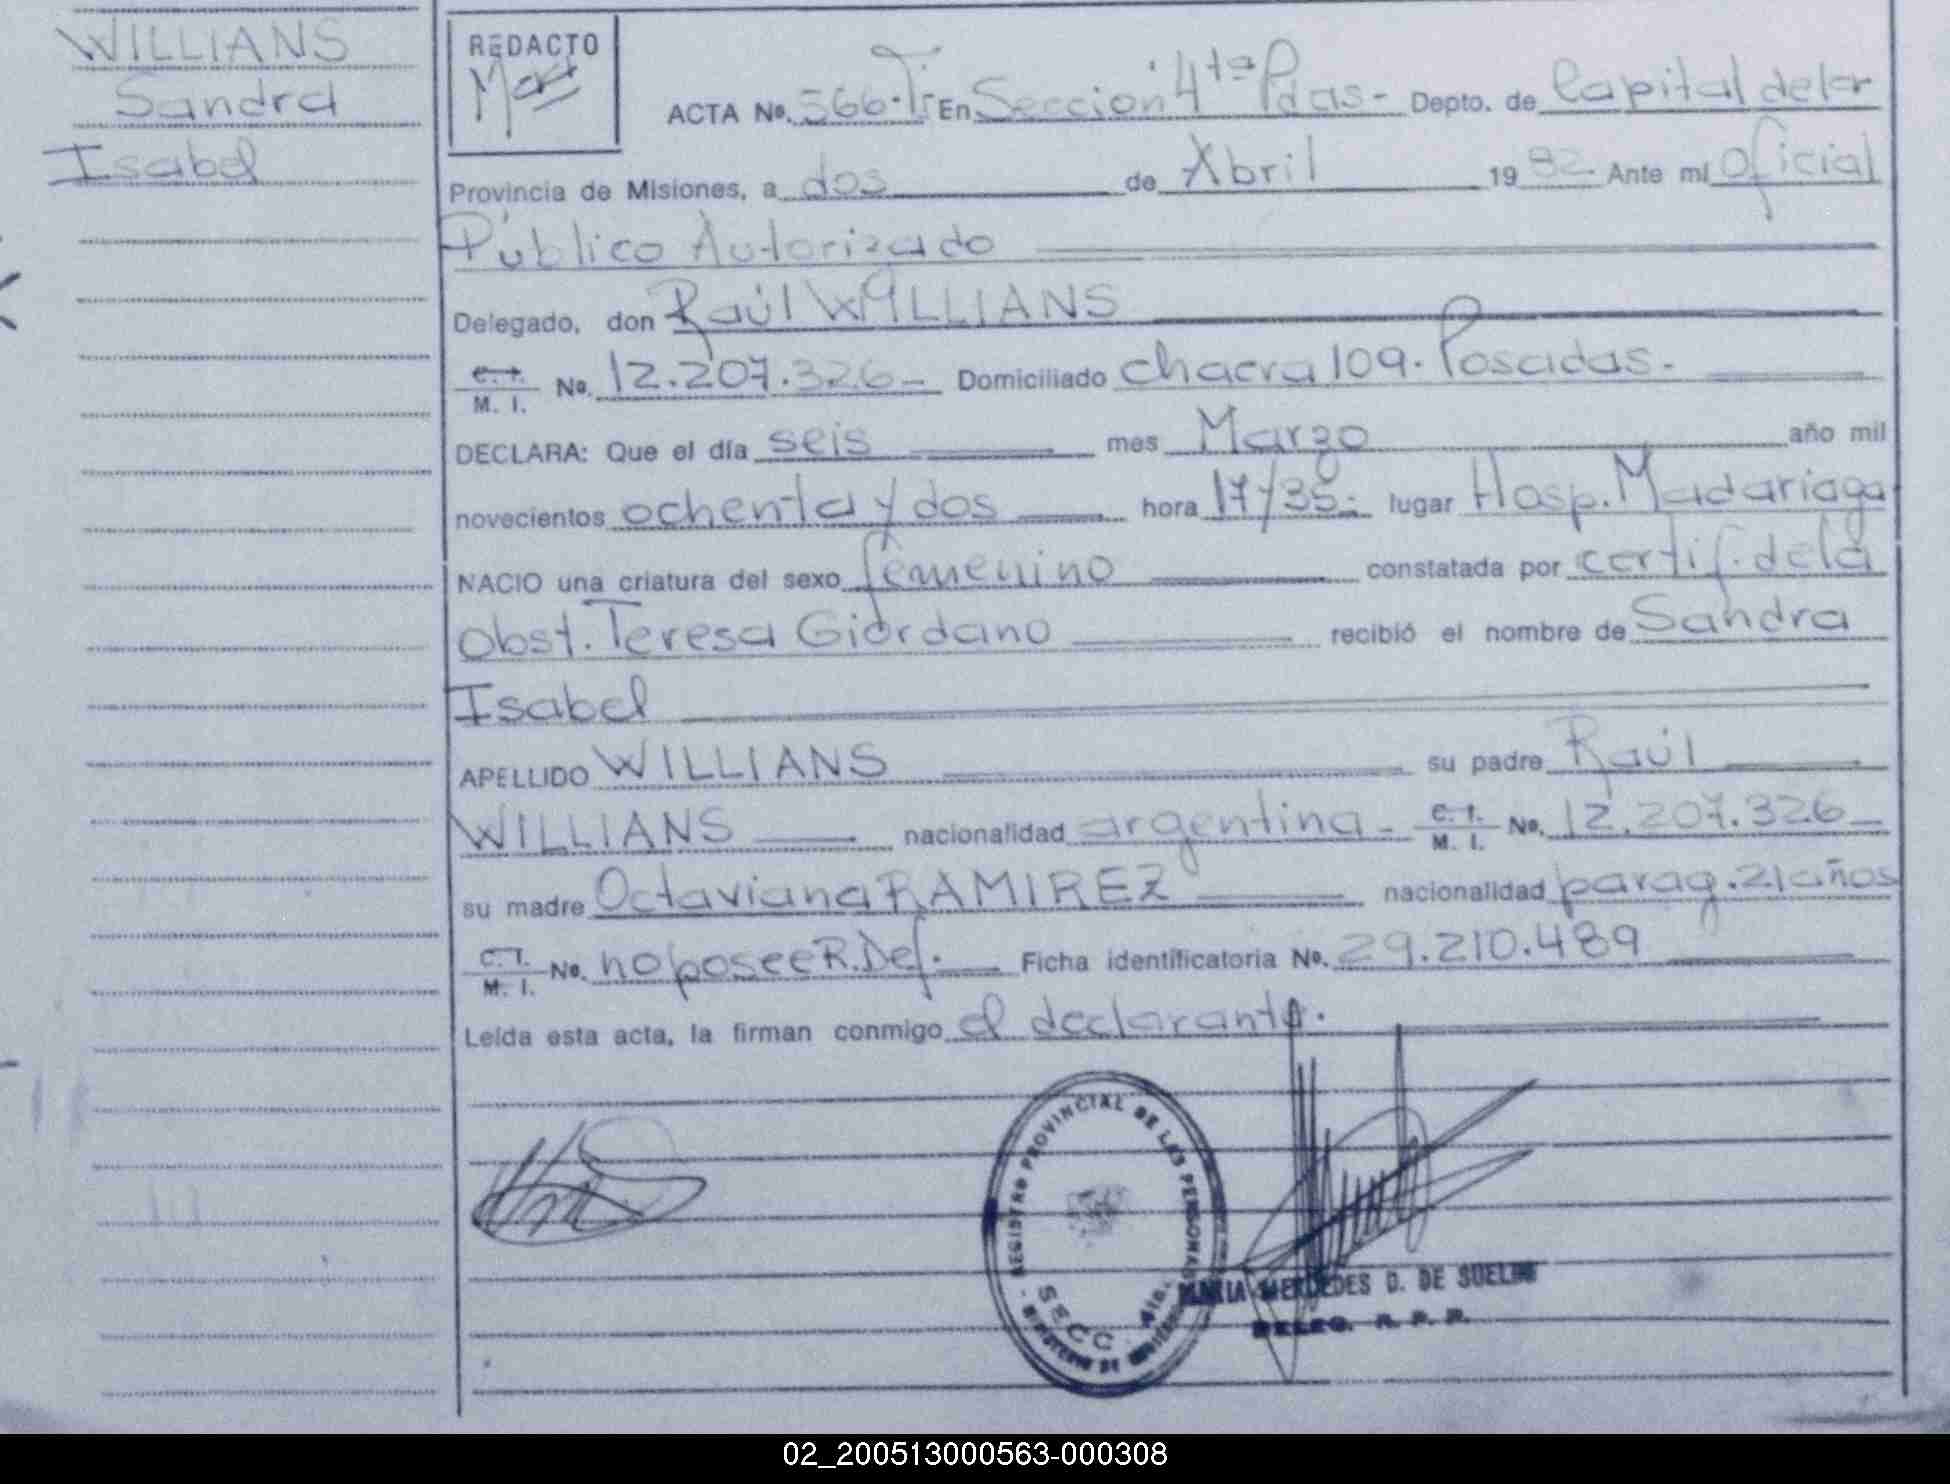 WILLIANS
Sandra
Isabel
REDACTO
ACTA No. 566-Ti En Sección 4ta Pdas- Depto. de Capital de la
Provincia de Misiones, a dos de Abril 1982 Ante mí Oficial
Público Autorizado
Delegado, don Raúl WILLIANS
C. I. M. I. No. 12.207.326- Domiciliado Chacra 109. Posadas.-
DECLARA: Que el día seis mes Marzo año mil
novecientos ochenta y dos hora 17/35.- lugar Hosp. Madariaga
NACIO una criatura del sexo femenino constatada por certif. de la
Obst. Teresa Giordano recibió el nombre de Sandra
Isabel
APELLIDO WILLIANS su padre Raúl
WILLIANS nacionalidad argentina- C. I. M. I. No. 12.207.326-
su madre Octaviana RAMIREZ nacionalidad parag. 21 años
C. I. M. I. No. no posee R. Def. Ficha identificatoria No. 29.210.489
Leída esta acta, la firman conmigo el declarante.
REGISTRO PROVINCIAL DE LAS PERSONAS
SECC. 4ta.
MARIA MERCEDES D. DE
DELEG. R. P. P.
02_200513000563-000308